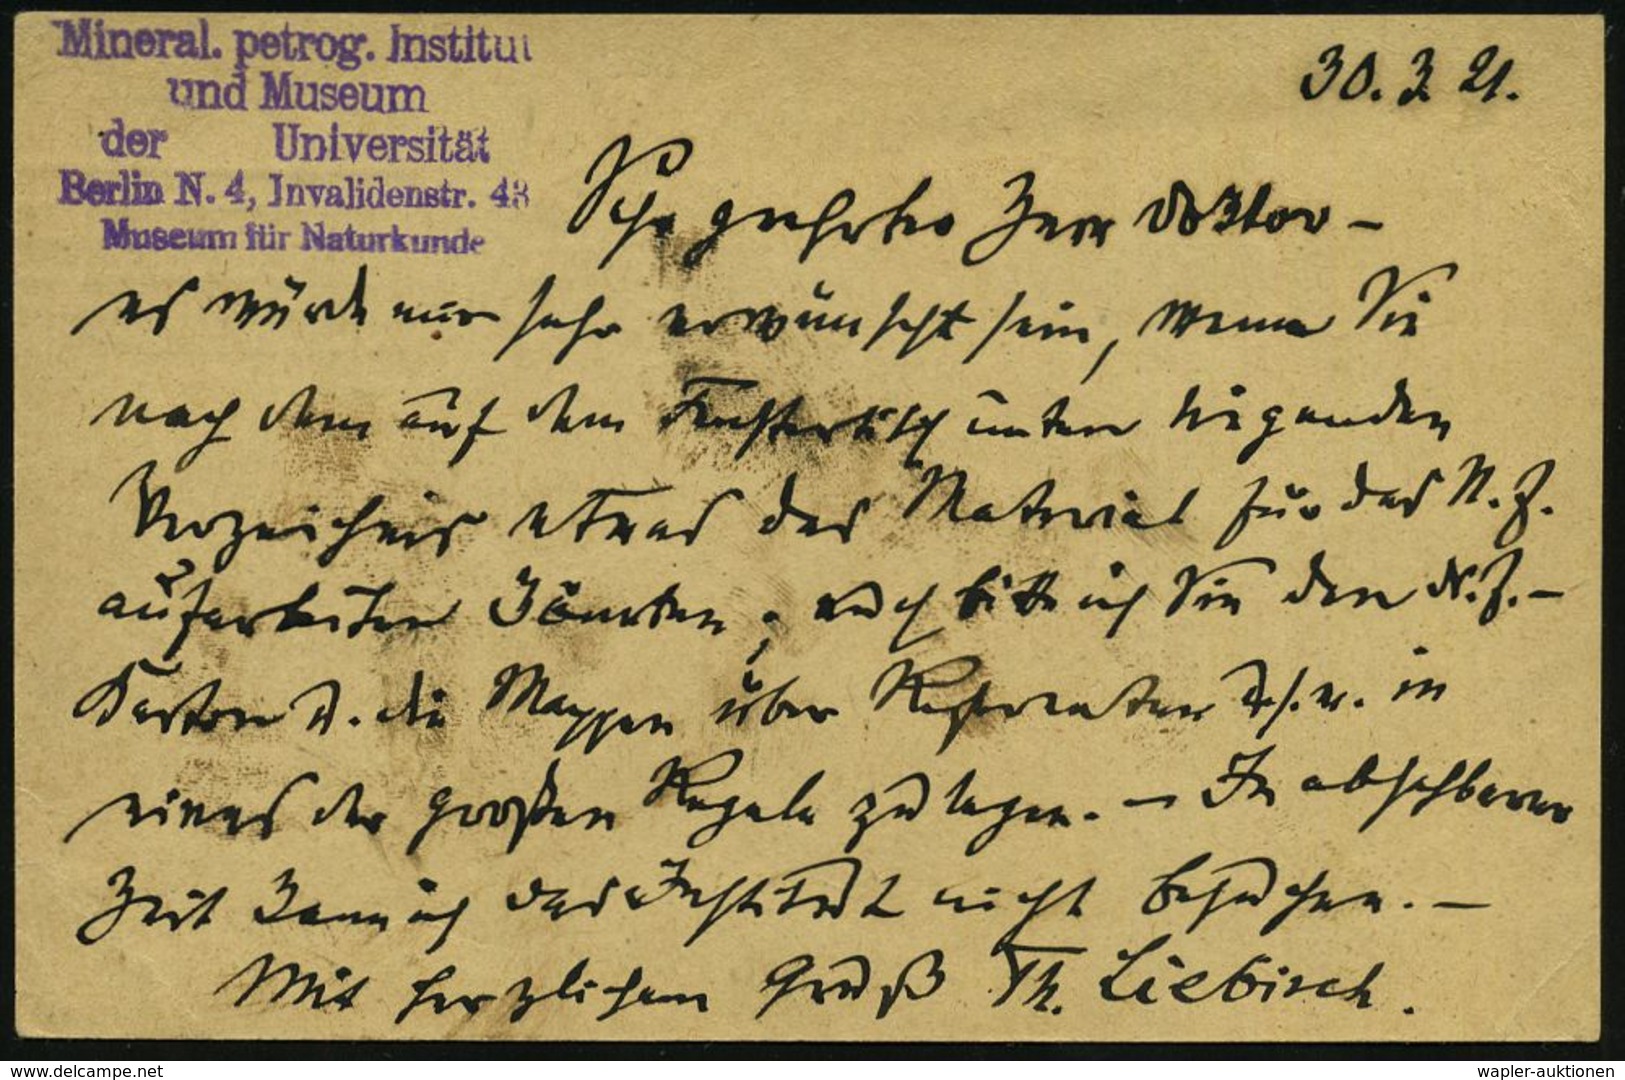 Mineral. petrog. Institut
und Museum
der Universität
Berlin N. 4, Invalidenstr. 43
Museum für Naturkunde
30. 3. 21.
Sehr geehrter Herr Doktor –
es würde mir sehr erwünscht sein, wenn Sie
nach dem auf dem Fenstertisch unten liegenden
Verzeichnis etwas das Material für das N. J.
aufarbeiten könnten; auch bitte ich Sie den N. J. –
Karton u. die Mappen über Referenten u. s. w. in
eines der großen Regale zu legen. – In absehbarer
Zeit kann ich das Institut nicht besuchen. –
Mit herzlichem Gruß Th. Liebisch.
www.delcampe.net
wapler-auktionen